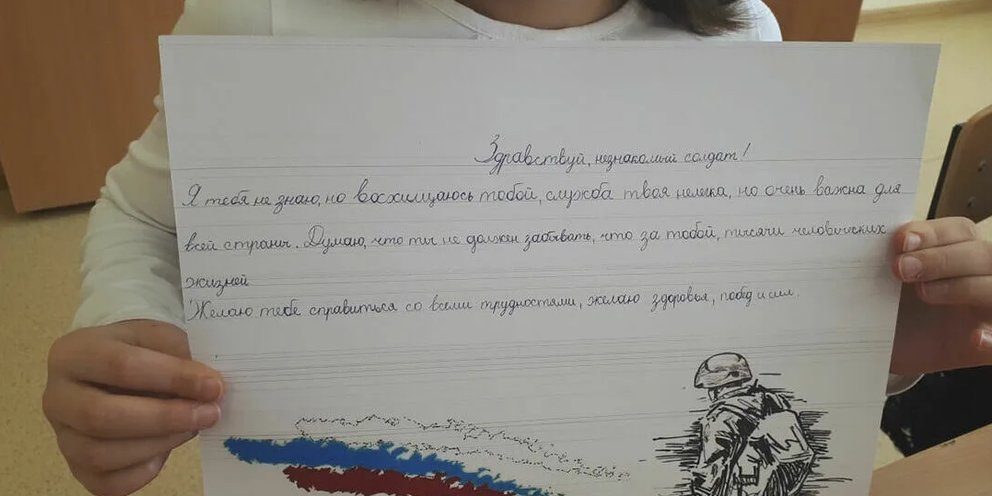 Здравствуй, незнакомый солдат!
Я тебя не знаю, но восхищаюсь тобой, служба твоя нелегка, но очень важна для
всей страны. Думаю, что ты не должен забывать, что за тобой, тысячи человеческих
жизней
Желаю тебе справиться со всеми трудностями, желаю здоровья, побед и сил.